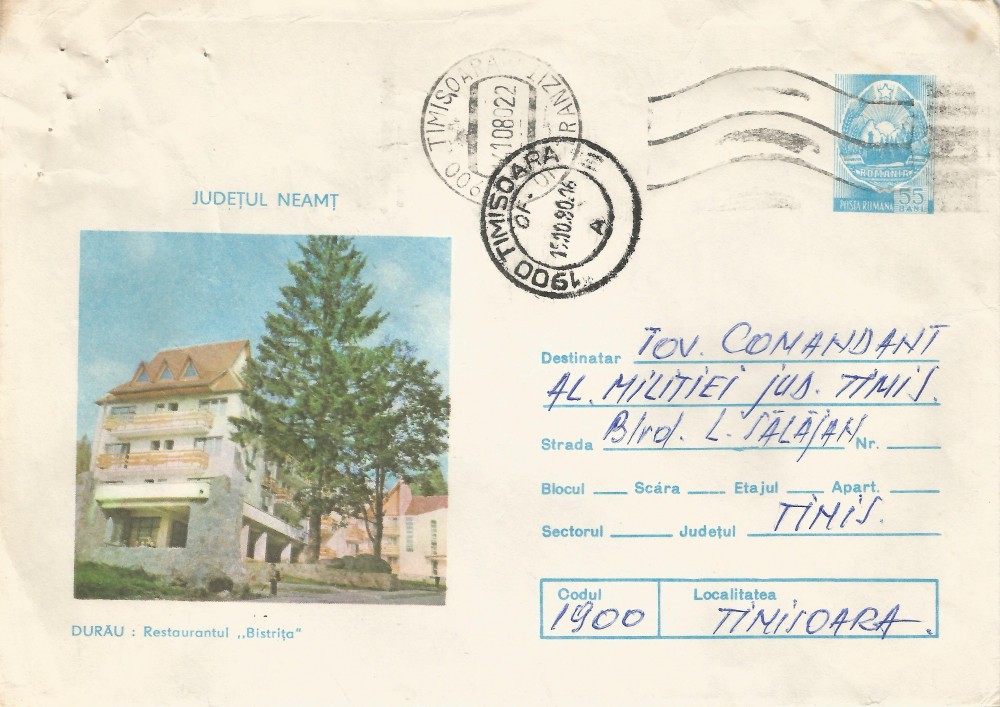 TIMIȘOARA TRANZIT
1900
11.10.80 22
1900 TIMISOARA
OF. 01
15.10.80.16
A
ROMANIA
POSTA ROMANA
55
BANI
JUDEȚUL NEAMȚ
Destinatar TOV. COMANDANT
AL. MILITIEI JUD. TIMIS.
Strada Blvd. L. SĂLĂJAN Nr.
Blocul Scára Etajul Apart.
Sectorul Județul TIMIS.
Codul Localitatea
1900 TIMISOARA.
DURĂU : Restaurantul ,,Bistrița"